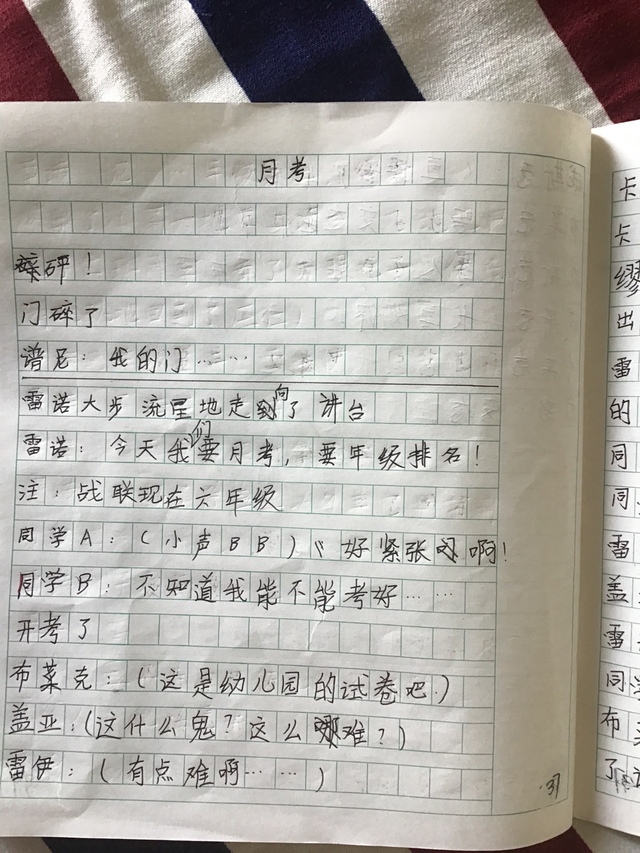 月考
砰！
门碎了
谱尼：我的门……
雷诺大步流星地走向了讲台
雷诺：今天我们要月考，要年级排名！
注：战联现在六年级
同学A：（小声BB）好紧张啊！
同学B：不知道我能不能考好……
开考了
布莱克：（这是幼儿园的试卷吧）
盖亚：（这什么鬼？这么难？）
雷伊：（有点难啊……）
37
卡
卡
缪
出
雷
的
同
同
雷
盖
雷
同
布
了